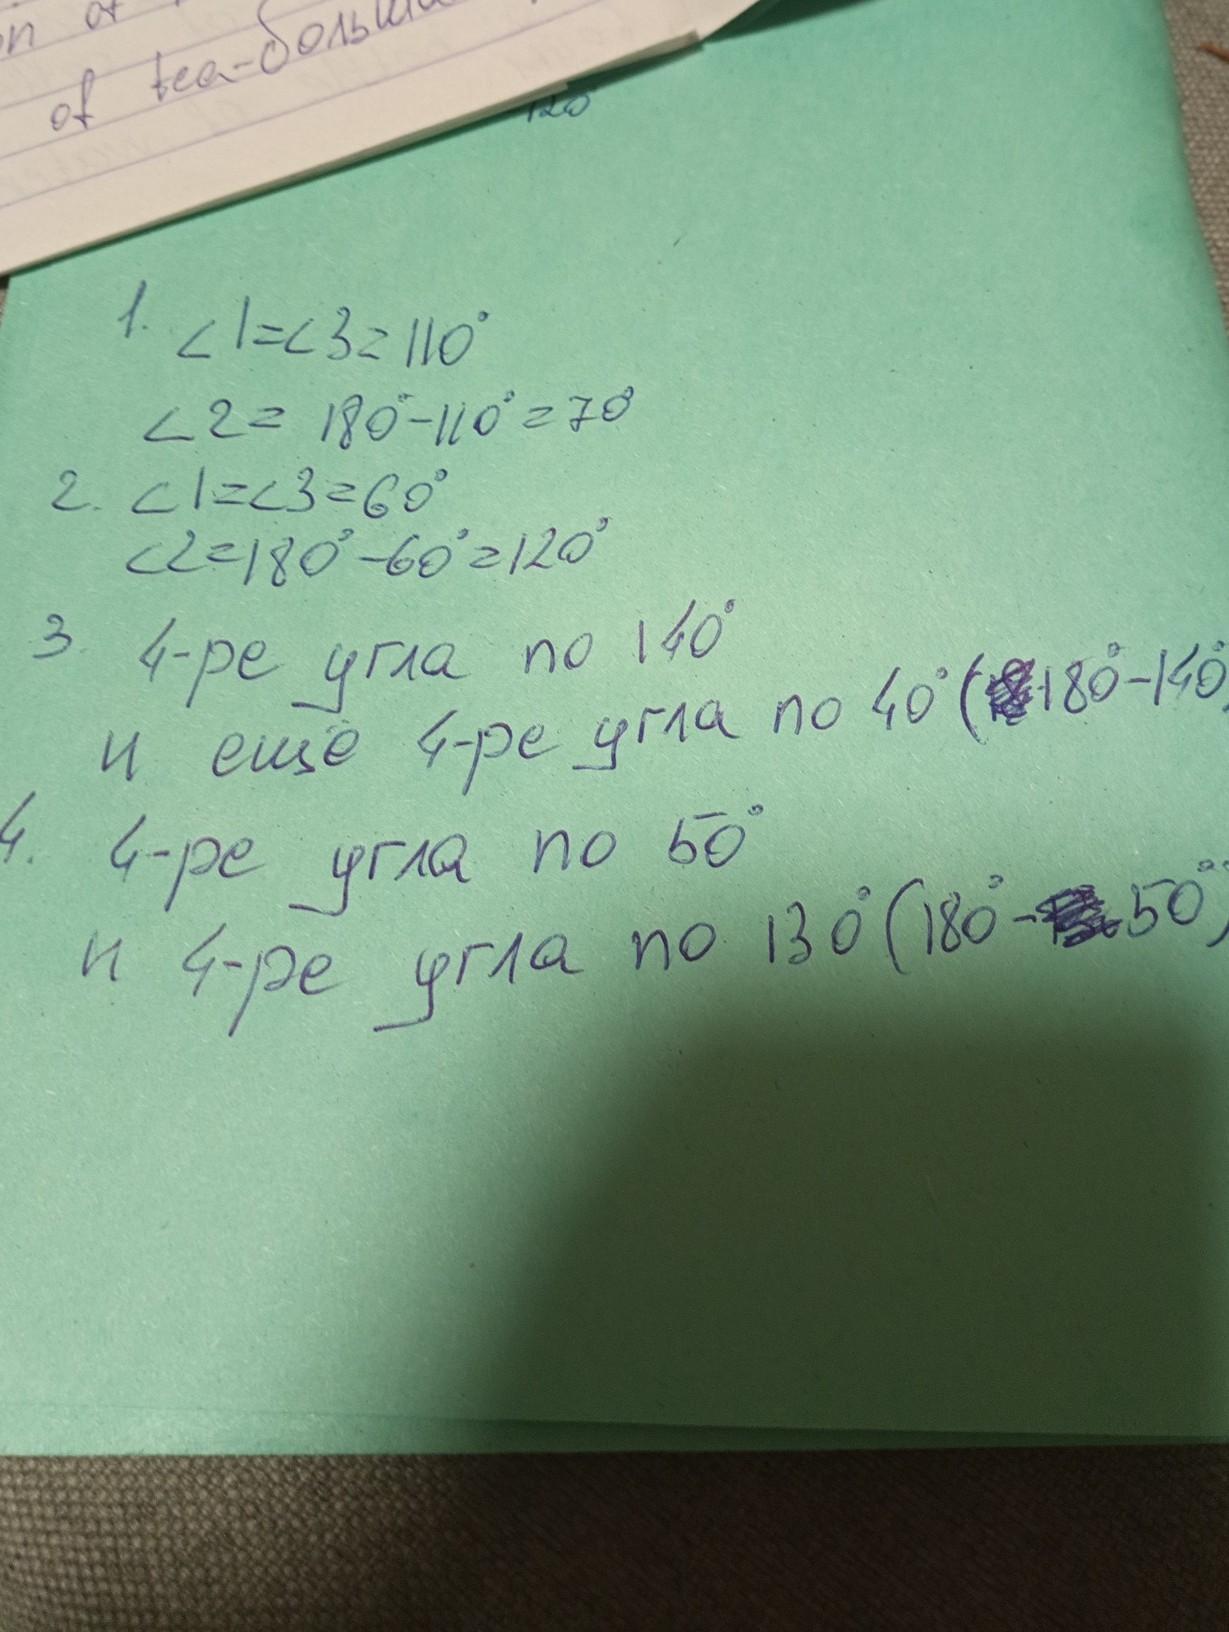 of
of tea-больша
120
1. ∠1=∠3=110°
∠2= 180°-110°=70°
2. ∠1=∠3=60°
∠2=180°-60°=120°
3. 4-ре угла по 140°
и ещё 4-ре угла по 40° (180°-140°)
4. 4-ре угла по 50°
и 4-ре угла по 130° (180°-50°)